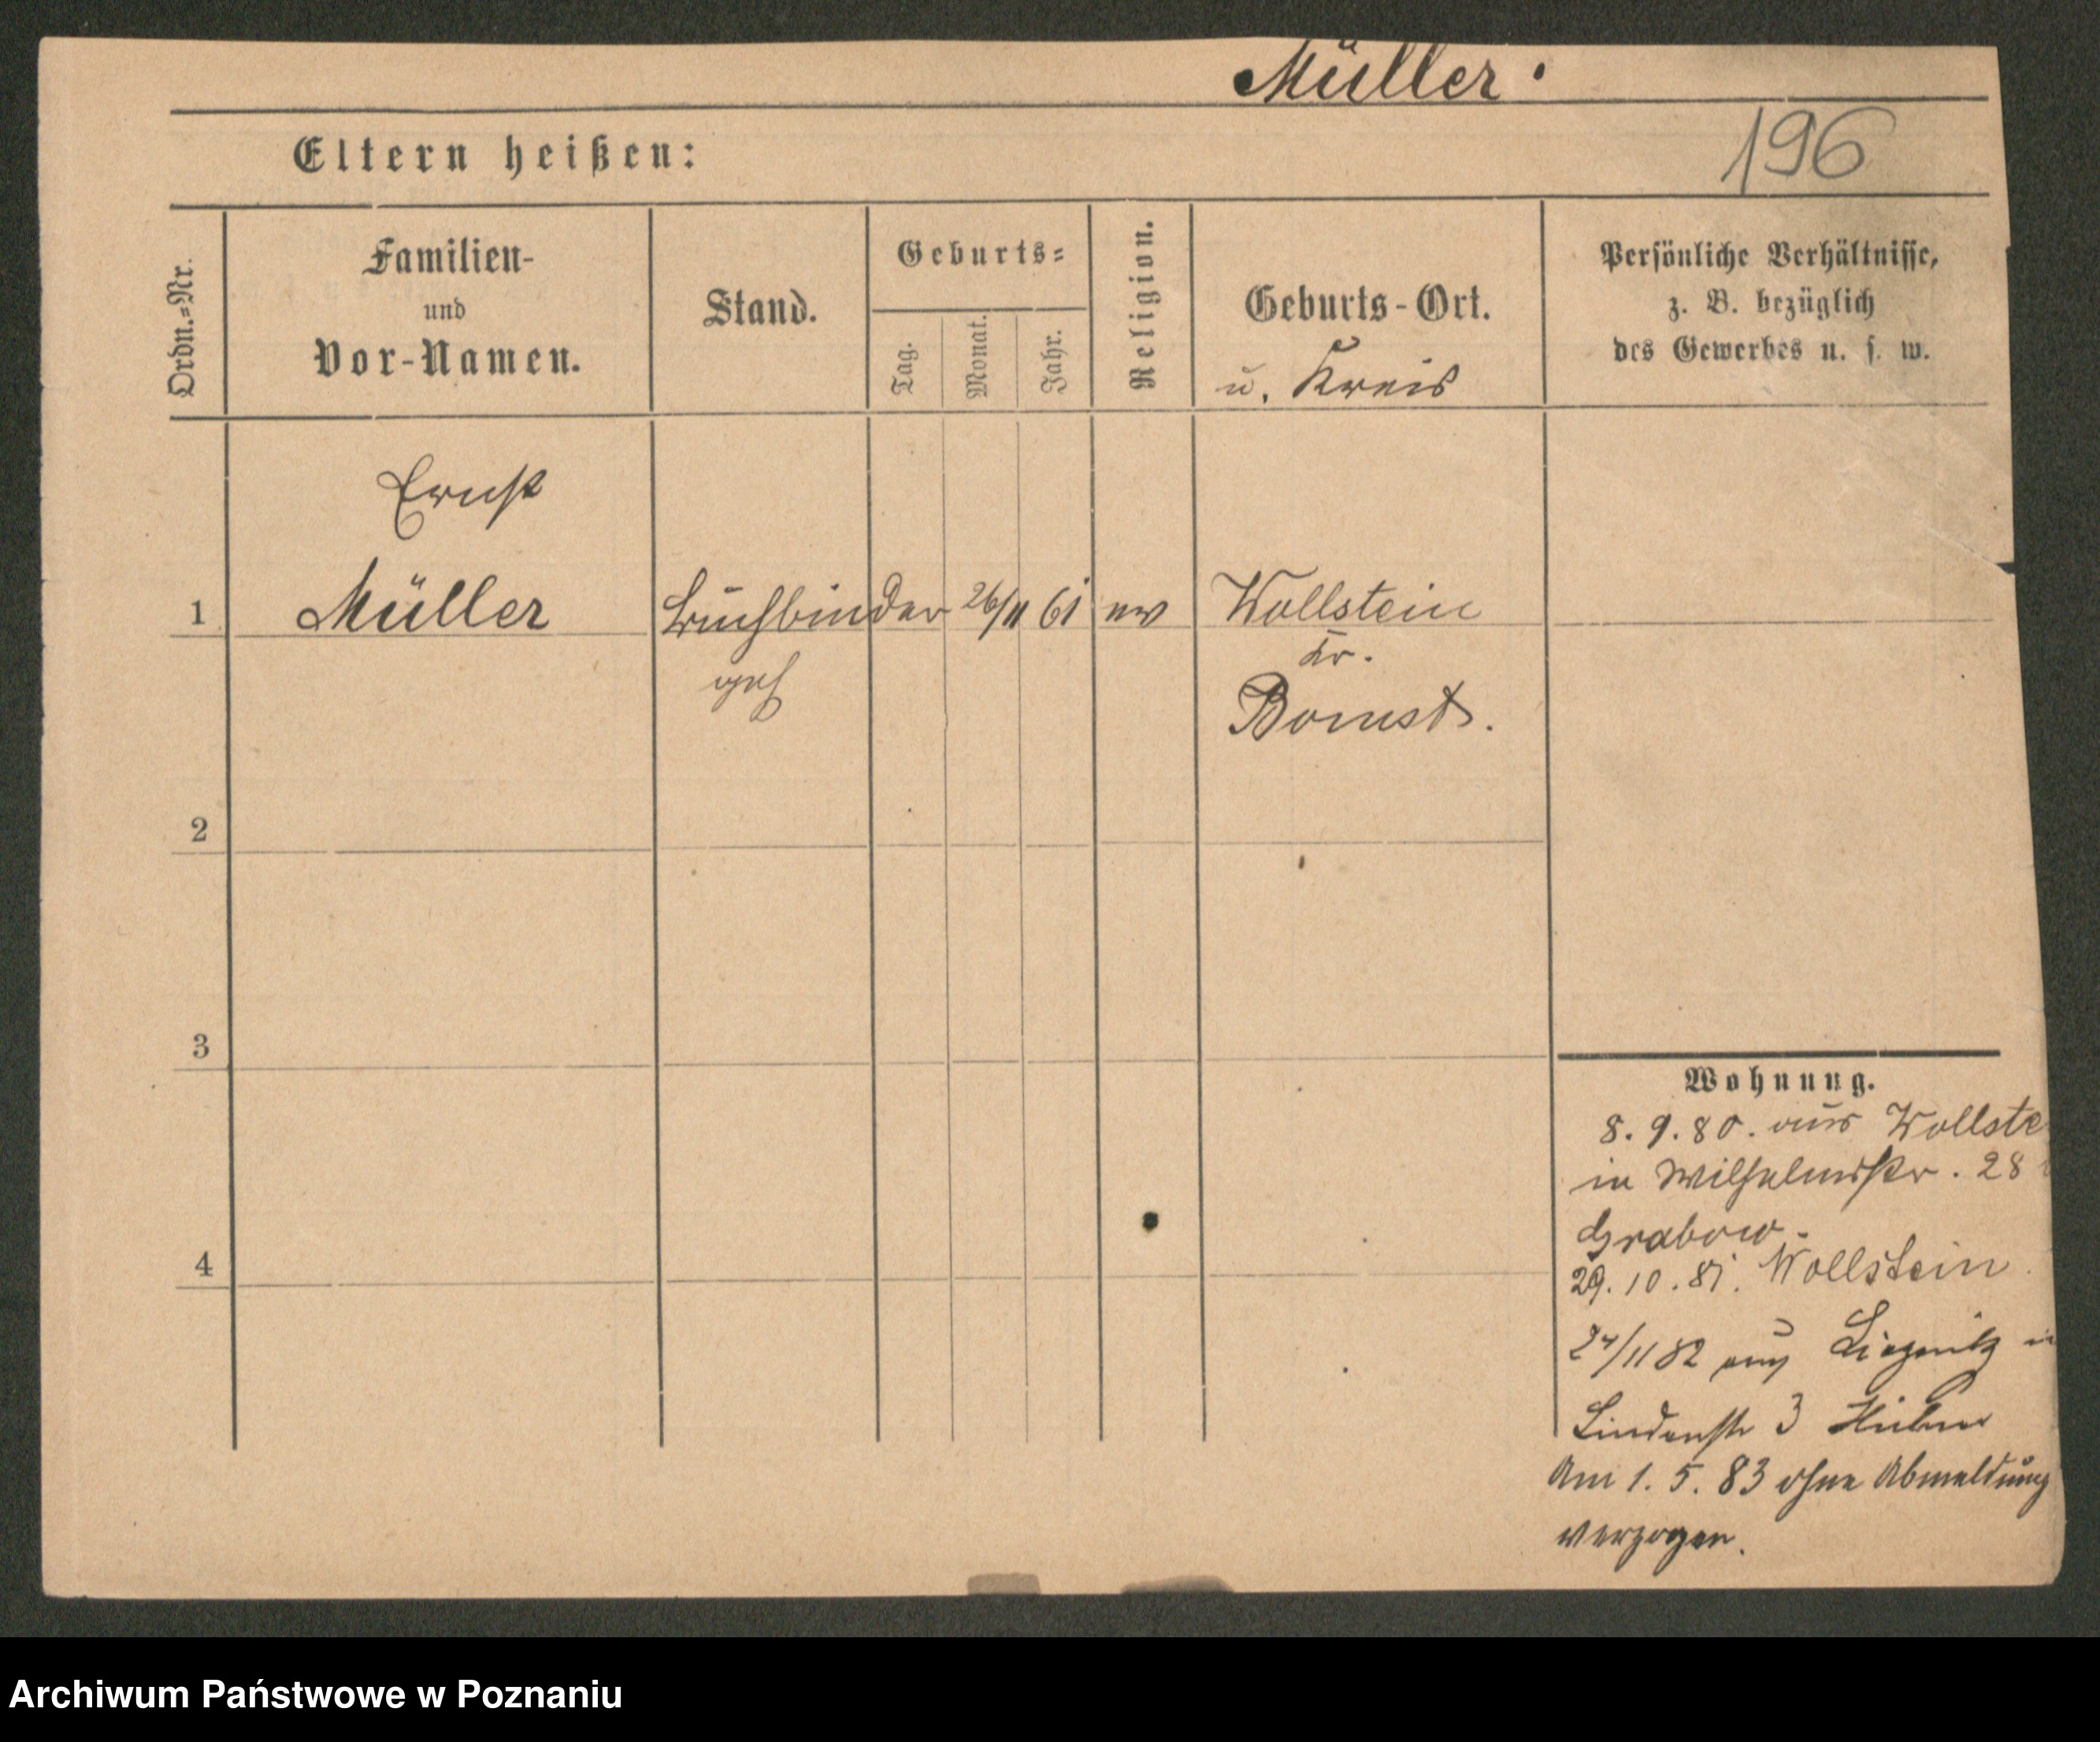 Müller.
196
Eltern heißen:
Ordn.-Nr.
Familien-
und
Vor-Namen.
Stand.
Geburts-
Tag.
Monat.
Jahr.
Religion.
Geburts-Ort.
u. Kreis
Persönliche Verhältnisse,
z. B. bezüglich
des Gewerbes u. s. w.
Ernst
1 Müller Buchbinder 26/11 61 ev Wollstein
geh Kr.
Bomst.
2
3
4
Wohnung.
8.9.80. aus Wollste
in Wilhelmstr. 28
Grabow.
29.10.81. Wollstein.
24/11 82 aus Liegnitz in
Lindenstr 3
Am 1.5.83 ohne Abmeldung
verzogen.
Archiwum Państwowe w Poznaniu